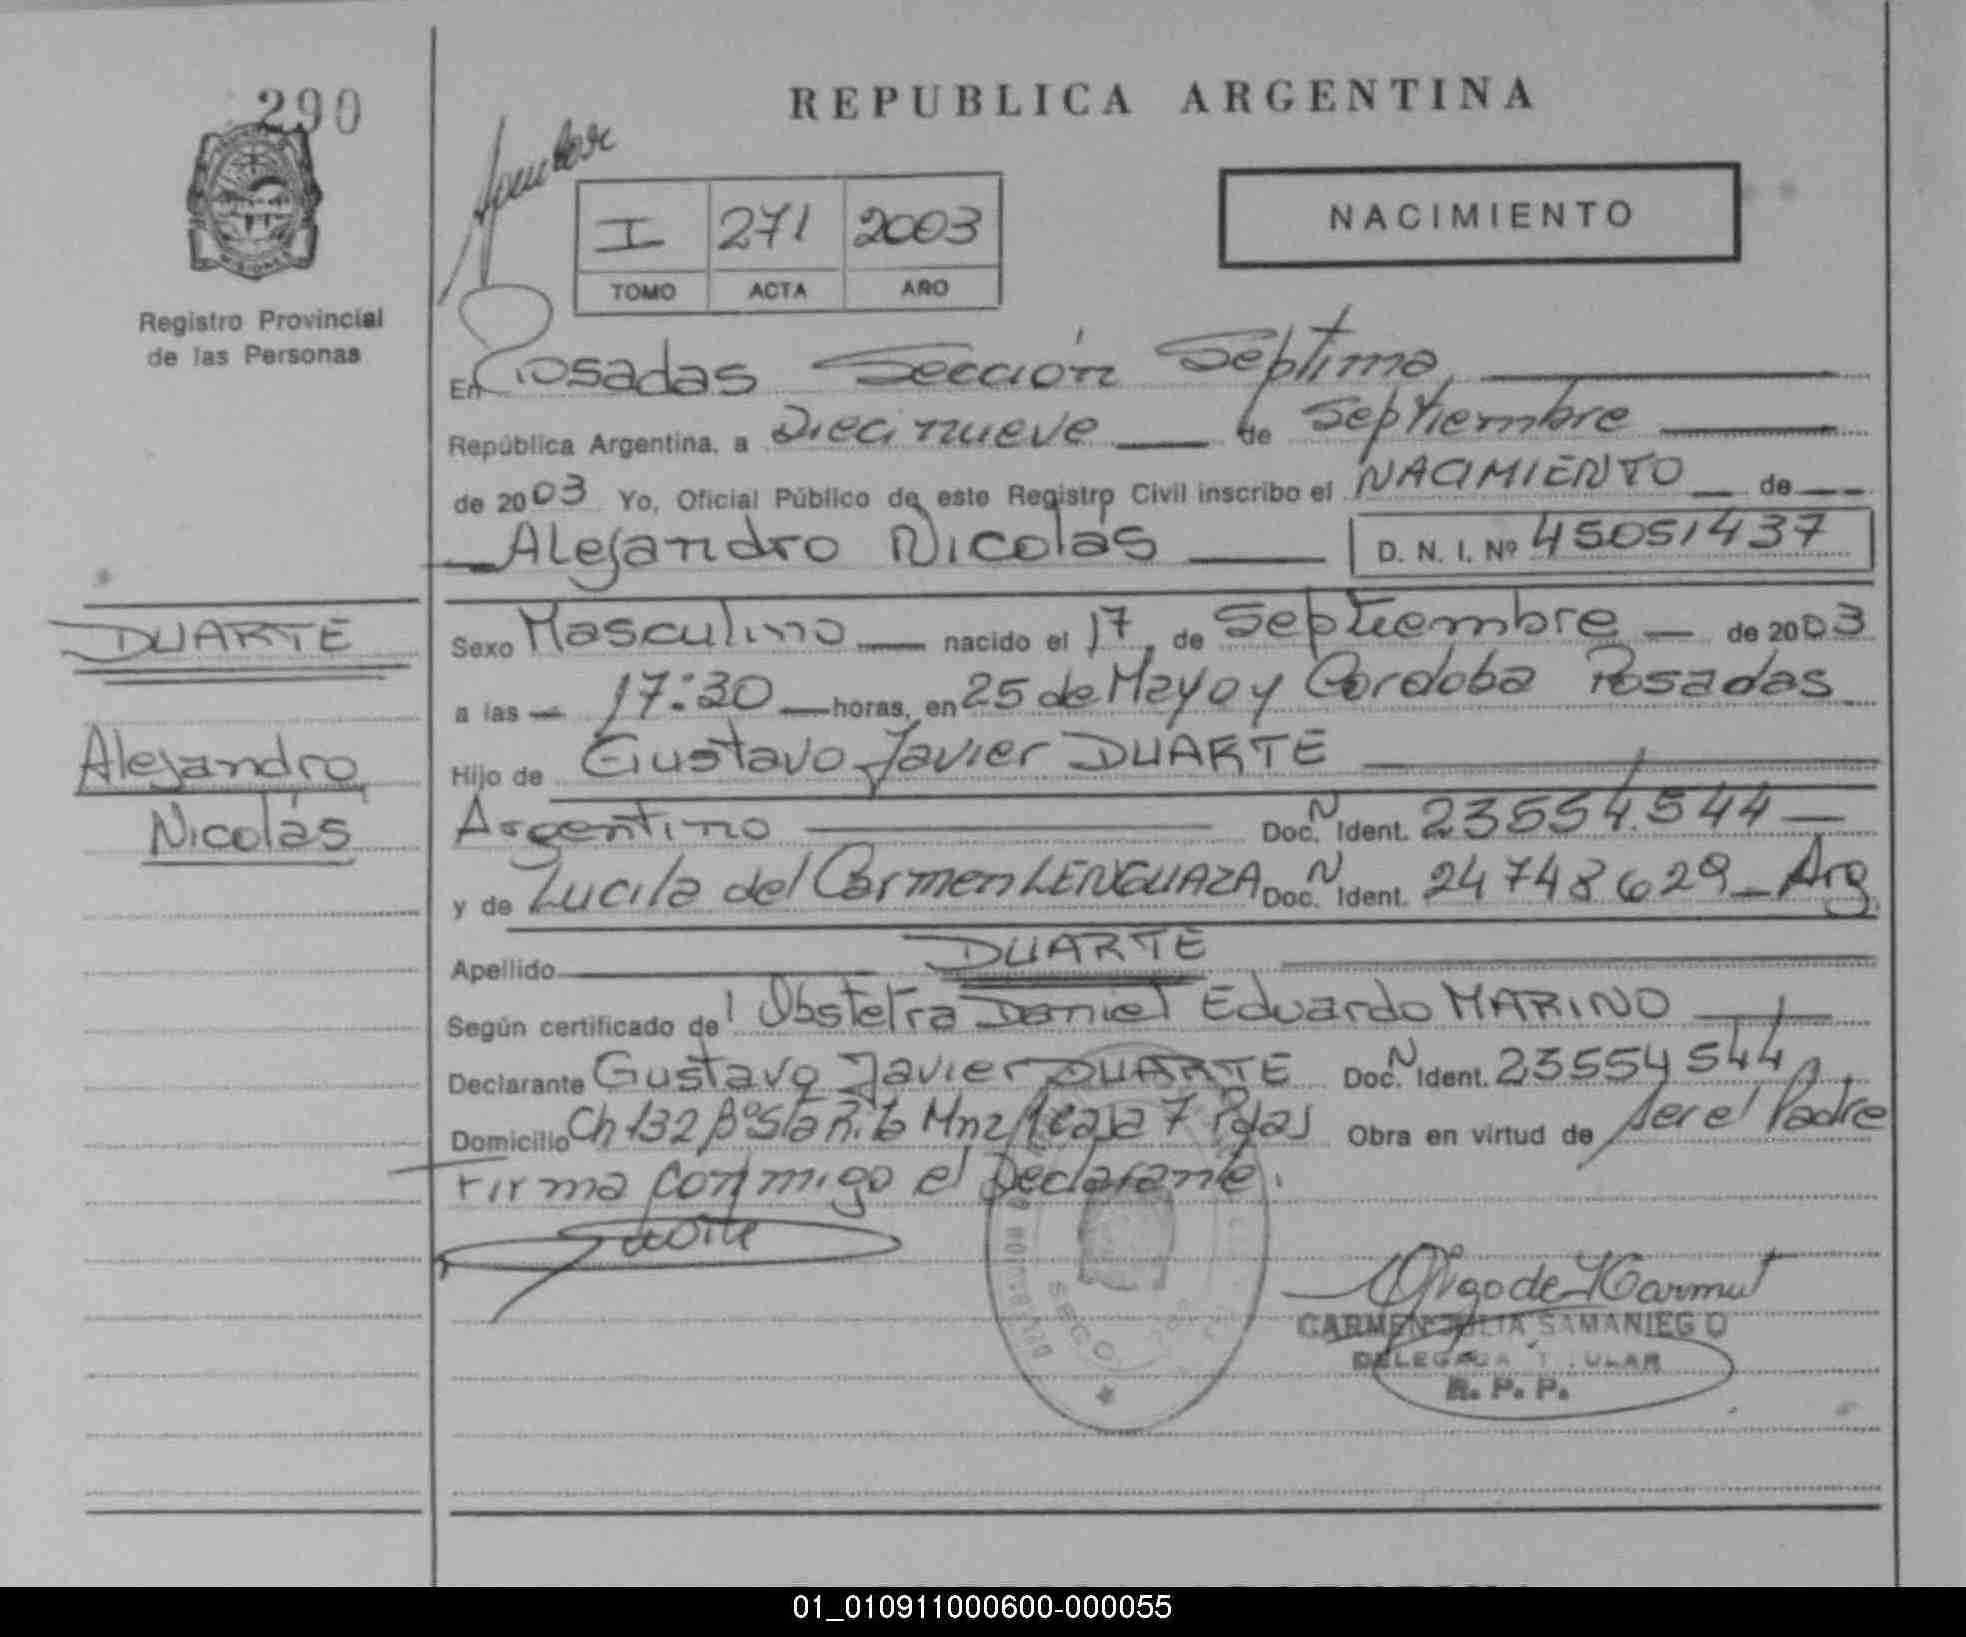 290
REPUBLICA ARGENTINA
NACIMIENTO
I 271 2003
TOMO ACTA AÑO
MISIONES
Registro Provincial
de las Personas
En Posadas Sección Septima
República Argentina, a Diecinueve de Septiembre
de 2003 Yo, Oficial Público de este Registro Civil inscribo el NACIMIENTO de
Alejandro Nicolás D. N. I. Nº 45051437
DUARTE
Alejandro
Nicolás
Sexo Masculino nacido el 17 de Septiembre de 2003
a las 17:30 horas, en 25 de Mayo y Cordoba Posadas
Hijo de Gustavo Javier DUARTE
Argentino Doc. N Ident. 23554544
y de Lucila del Carmen LENGUAZA Doc. N Ident. 24748629 Arg.
Apellido DUARTE
Según certificado de Obstetra Daniel Eduardo MARINO
Declarante Gustavo Javier DUARTE Doc. N Ident. 23554544
Domicilio Ch 132 Bº Sta Rita Mnz casa 7 Pdas Obra en virtud de ser el Padre
Firma conmigo el Declarante.
CARMEN JULIA SAMANIEGO
DELEGADA TITULAR
R. P. P.
01_010911000600-000055